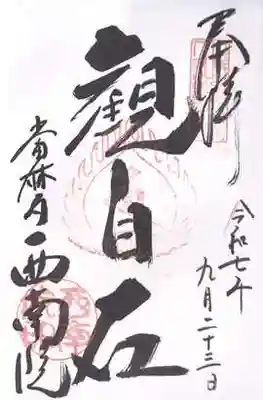 奉拝
令和七年
九月二十三日
觀自在
當麻寺西南院